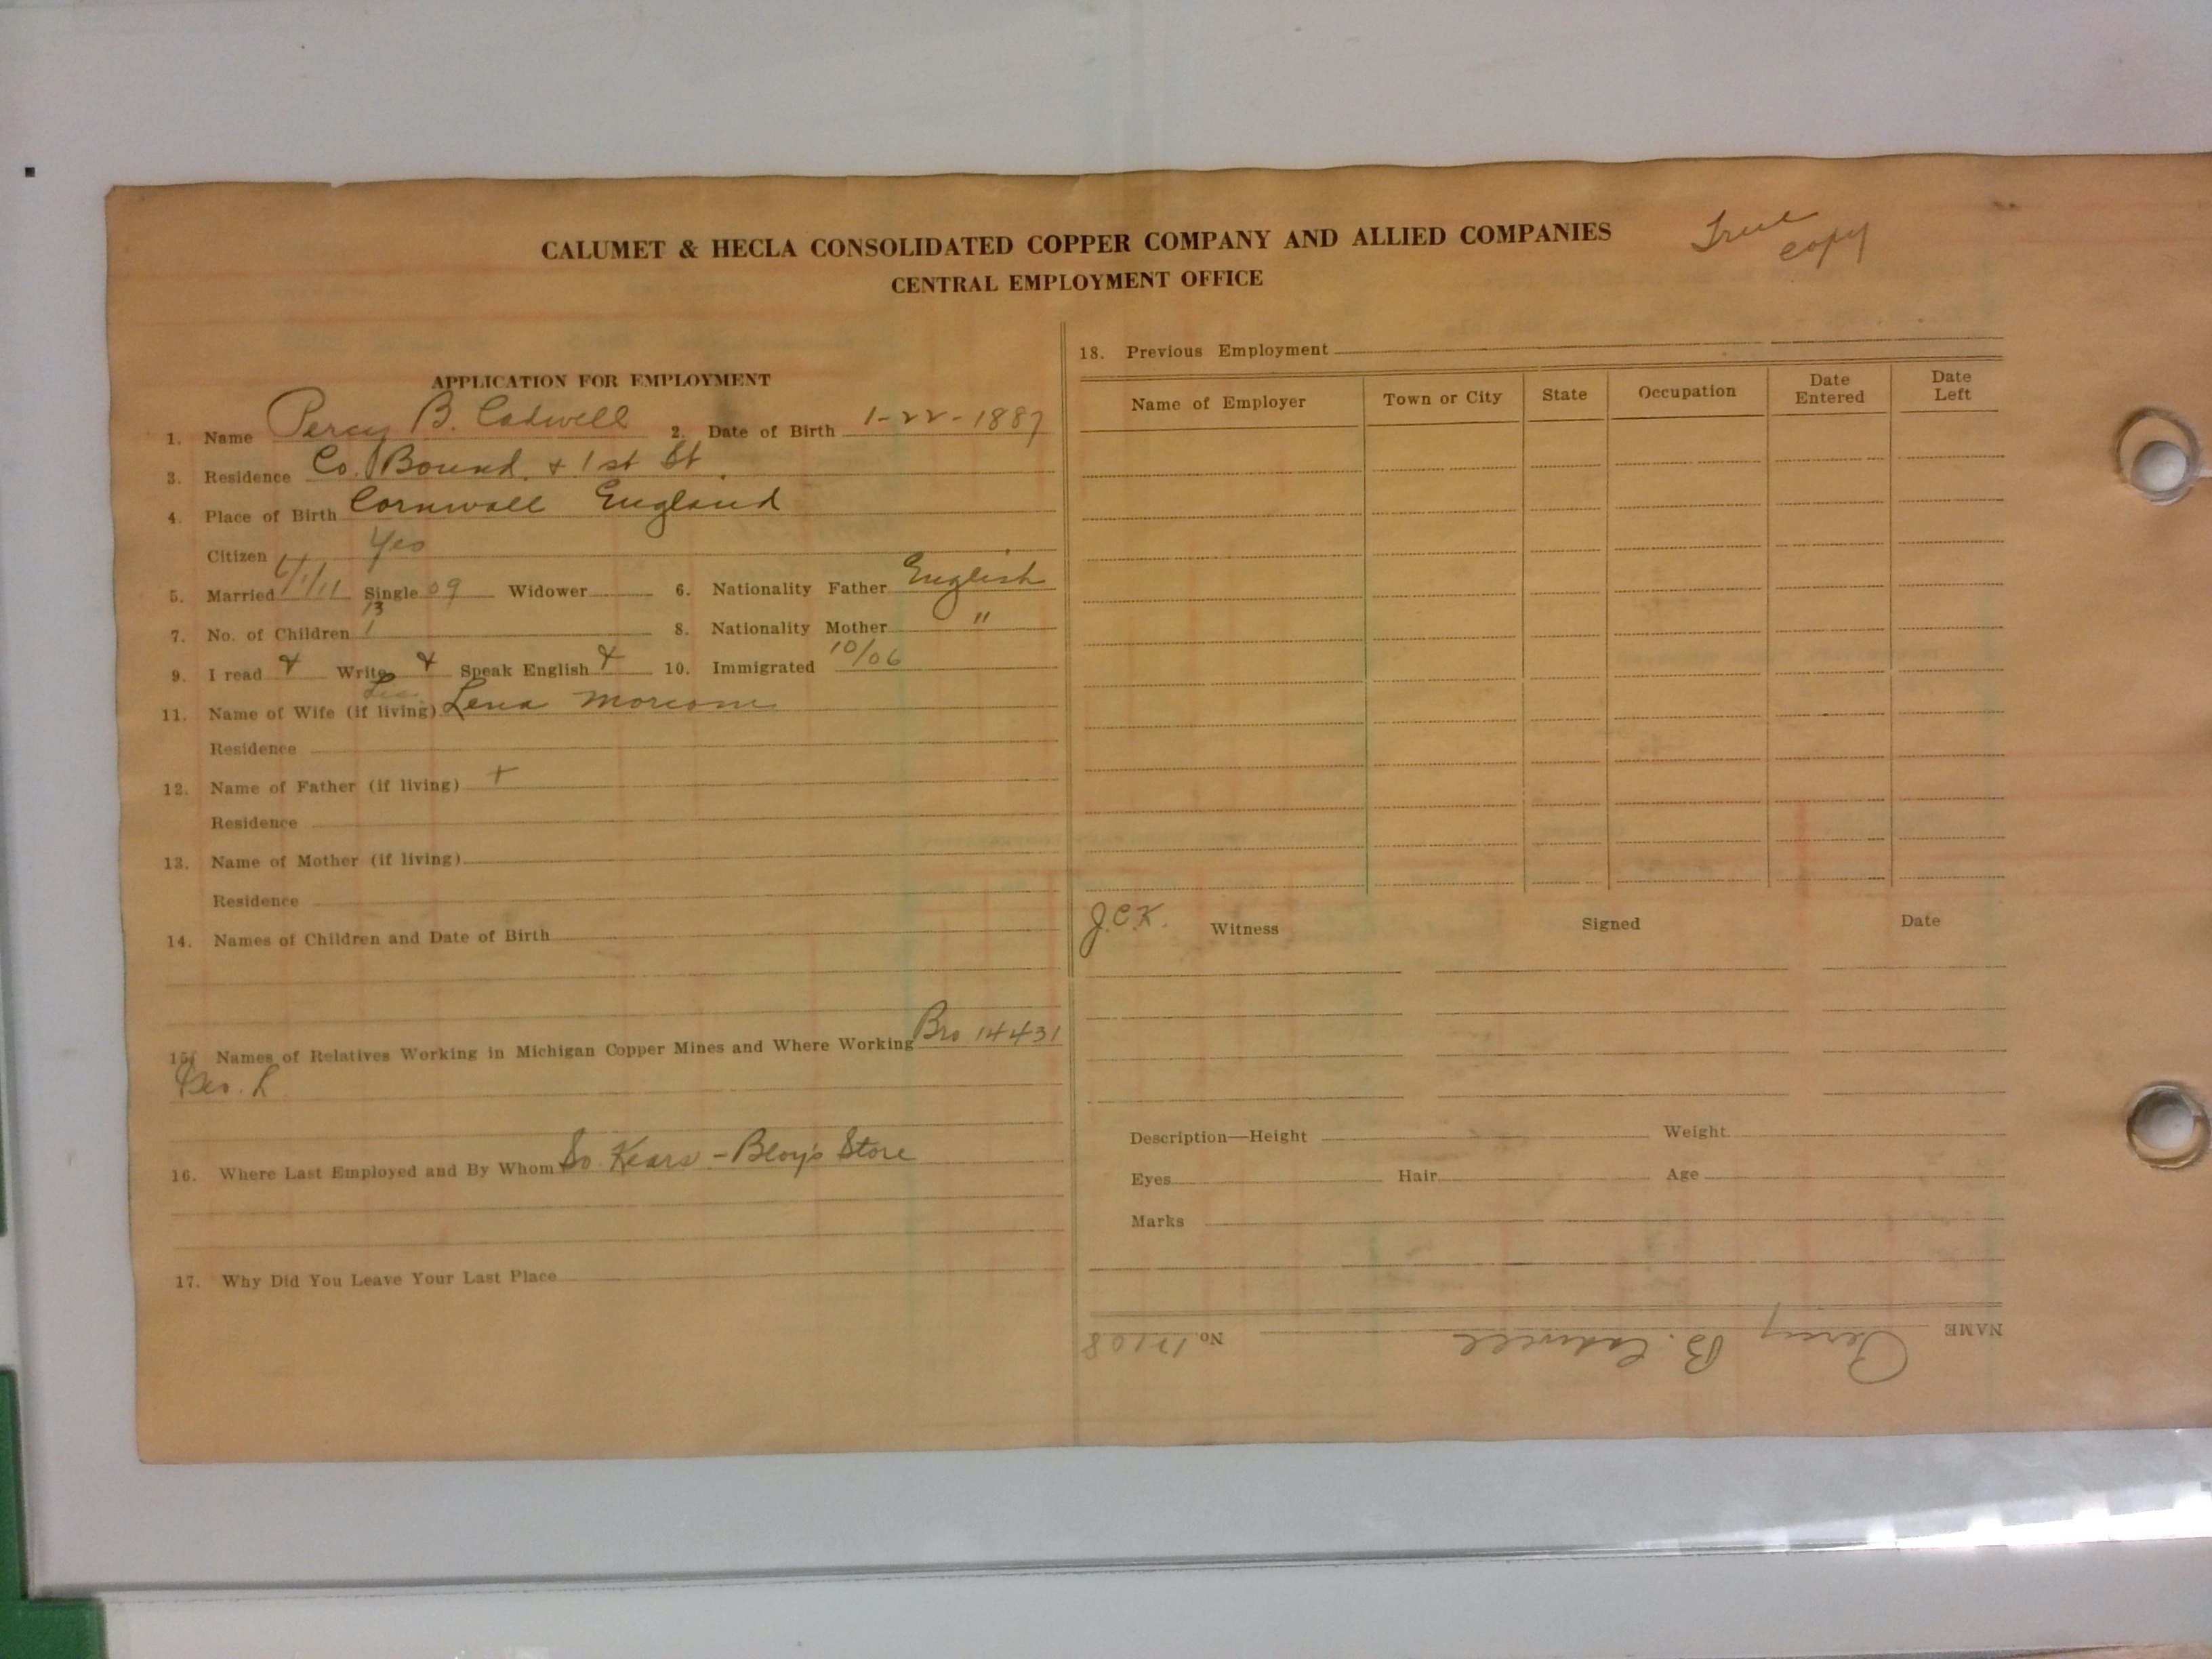 CALUMET & HECLA CONSOLIDATED COPPER COMPANY AND ALLIED COMPANIES
True copy
CENTRAL EMPLOYMENT OFFICE
APPLICATION FOR EMPLOYMENT
1. Name Percy B. Cadwell 2. Date of Birth 1-22-1887
3. Residence Co. Bound. + 1st St.
4. Place of Birth Cornwall England
Citizen Yes
5. Married 6/1/11 Single 09 Widower 6. Nationality Father English
13
7. No. of Children 1 8. Nationality Mother "
9. I read + Write + Speak English + 10. Immigrated 10/06
11. Name of Wife (if living) Lena
Residence
12. Name of Father (if living) +
Residence
13. Name of Mother (if living)
Residence
14. Names of Children and Date of Birth
15. Names of Relatives Working in Michigan Copper Mines and Where Working Bro 14431
Geo. L
16. Where Last Employed and By Whom So. Kears - Bloy's Store
17. Why Did You Leave Your Last Place
18. Previous Employment
Name of Employer Town or City State Occupation Date Entered Date Left
J.C.K. Witness Signed Date
Description—Height Weight
Eyes Hair Age
Marks
NAME Percy B. Cadwell No 12108